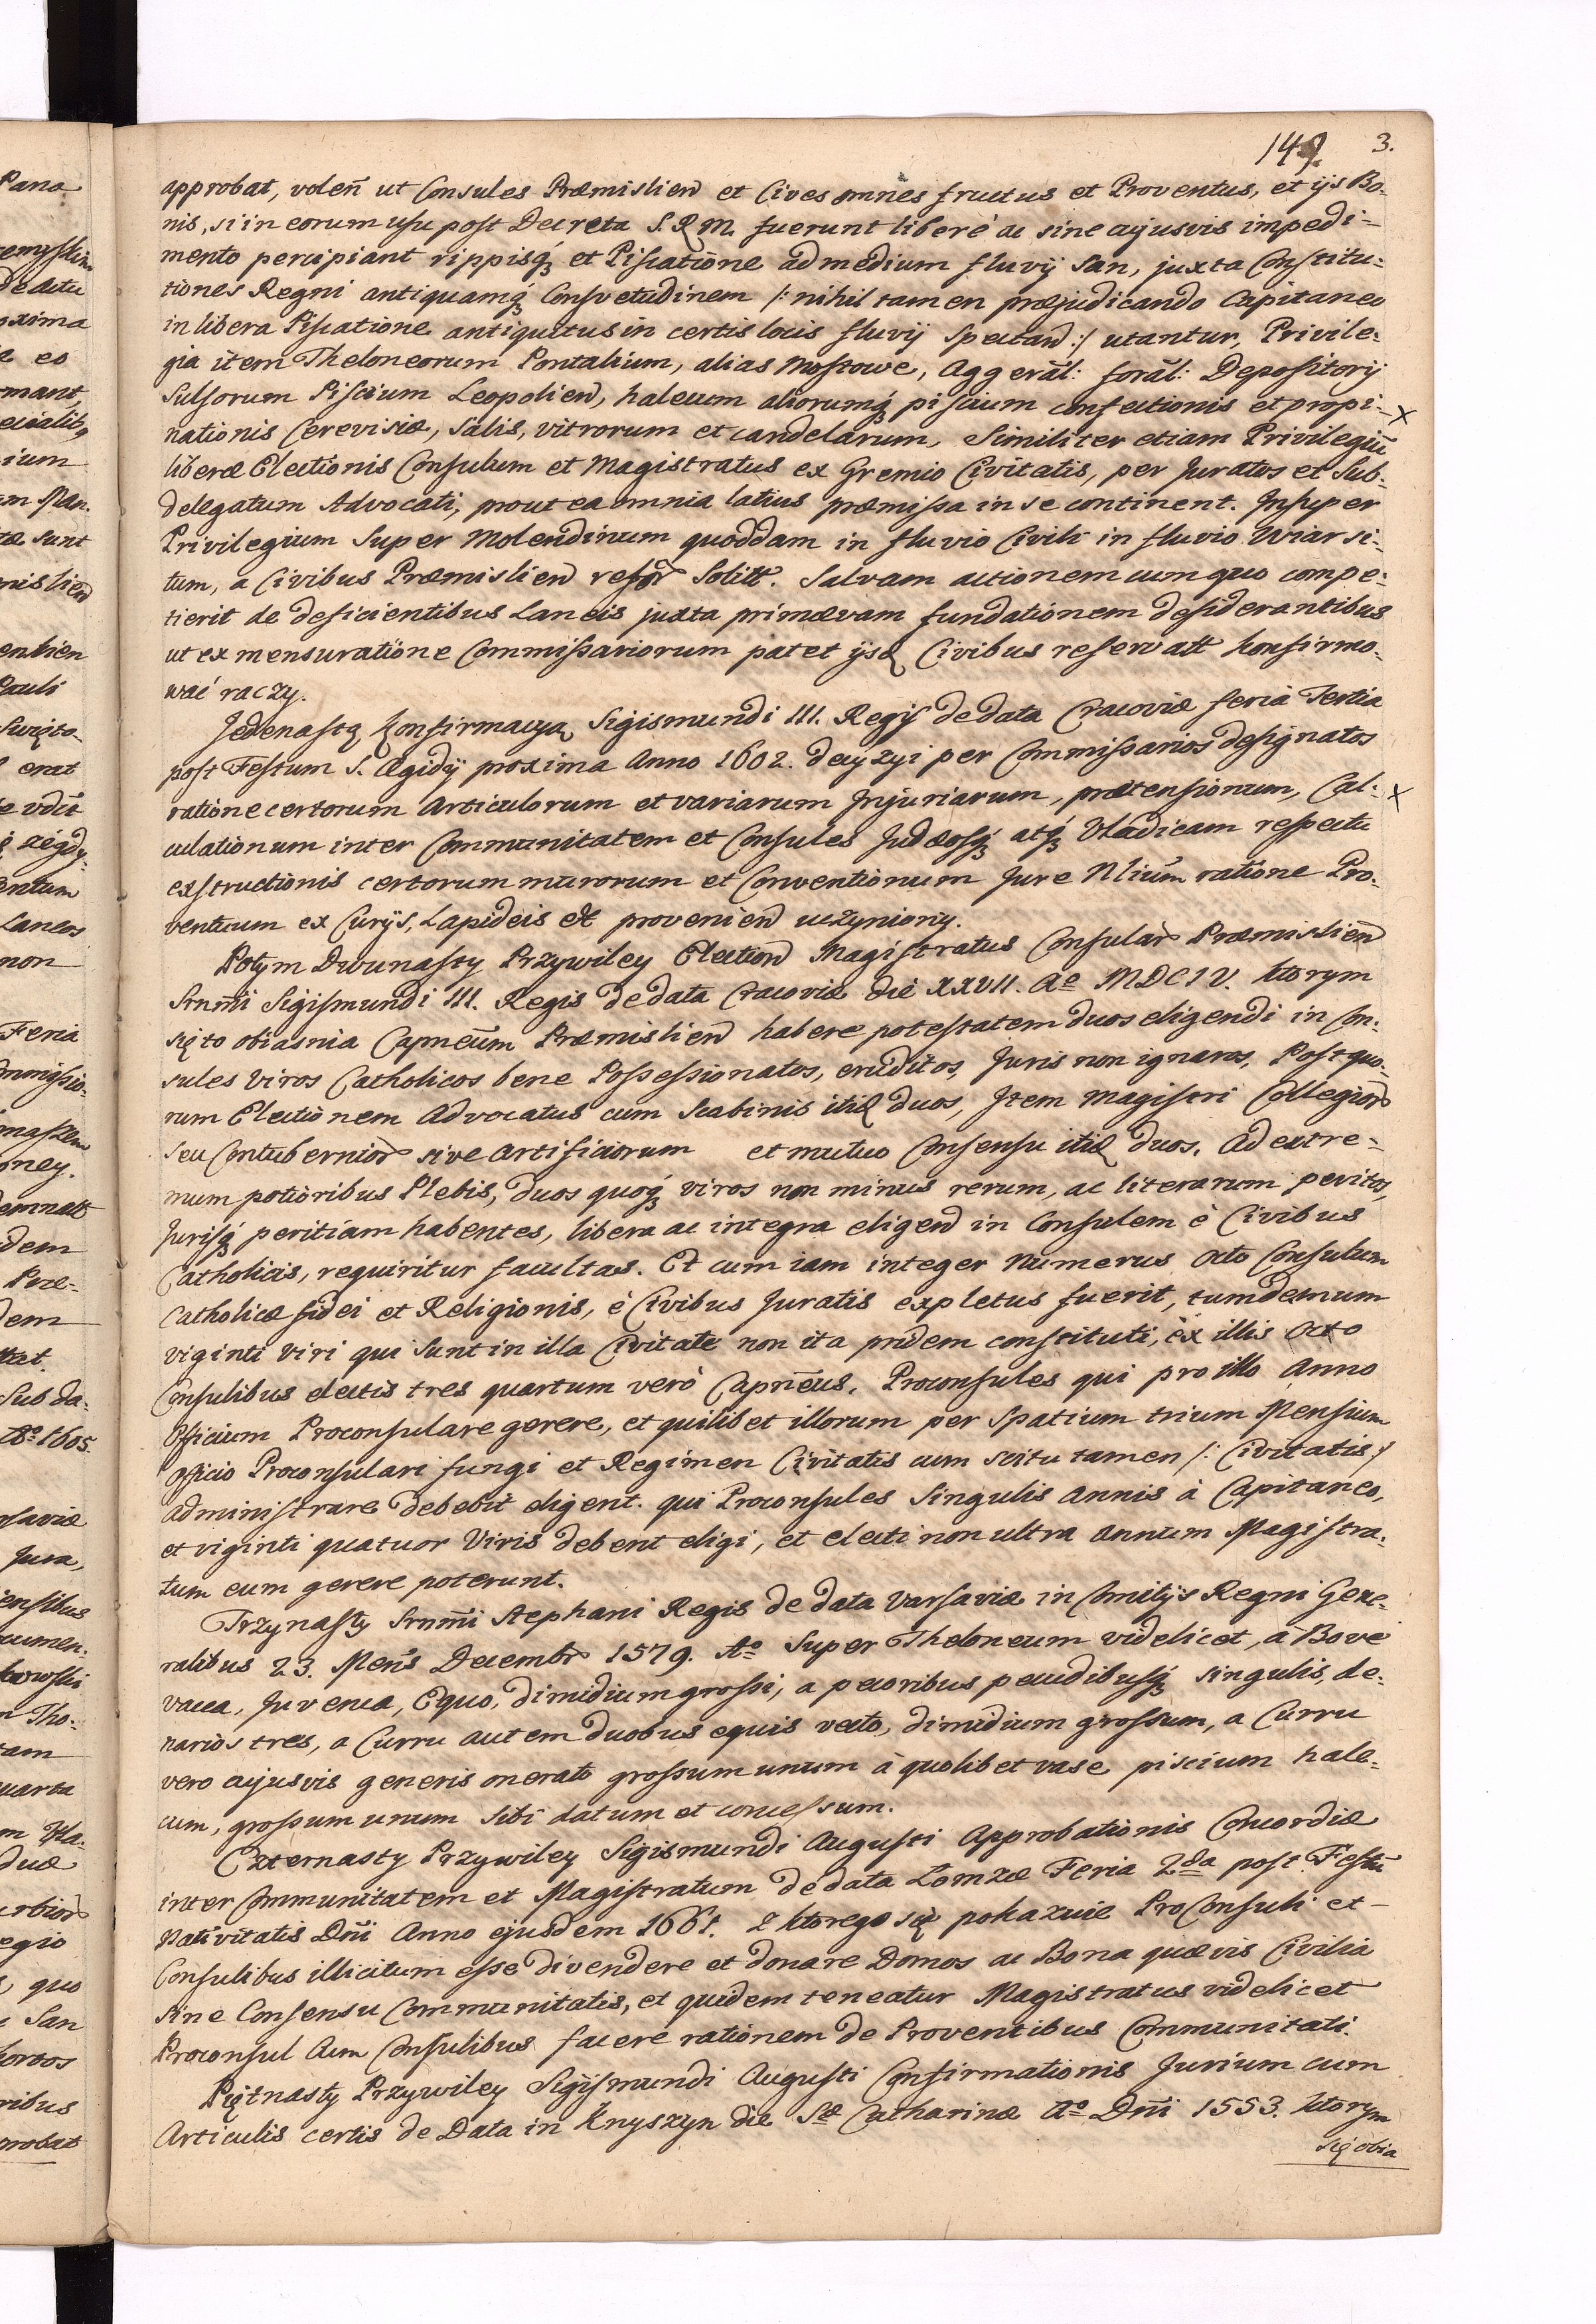 149. 3.
approbat, voleñ ut Consules Præmislien et Cives omnes fructus et Proventus, et ijs Bo-
nis, si in eorum usu post Decreta S. R. M. fuerunt liberè ac sine cujusvis impedi-
mento percipiant rippisq; et Piscatione ad medium fluvij San, juxta Constitu-
tiones Regni antiquamq; Consvetudinem /: nihil tamen præjudicando Capitaneo
in libera Piscatione antiquitus in certis locis fluvij spectan :/ utantur, Privile-
gia item Theloneorum Pontalium, alias Mostowe, Aggerãl: forãl: Depositorij
Sulsorum Piscium Leopolien, halecum aliorumq; piscium confectionis et propi-
nationis Cerevisiæ, Salis, vitrorum et candelarum, Similiter etiam Privilegiũ
liberæ Electionis Consulum et Magistratus ex Gremio Civitatis, per Juratos et Sub-
delegatum Advocati, prout ea omnia latius præmissa in se continent. Insuper
Privilegium Super Molendinum quoddam in fluvio Civili in fluvio Wiar si-
tum, a Civibus Præmislien Solitt. Salvam actionem cum quo compe-
tierit de deficientibus Laneis juxta primævam fundationem desiderantibus
ut ex mensuratione Commissariorum patet ijsd Civibus reservatt konfirmo-
wać raczy.
Jedenastą konfirmacyą Sigismundi III. Regis de data Cracoviæ feria Tertia
post Festum S. Ægidij proxima Anno 1602. decyzyi per Commissarios designatos
ratione certorum Articulorum et variarum Injuriarum, prætensionum, Cal-
culationum inter Communitatem et Consules Judæosq; atq; Vladicam respectu
exstructionis certorum murorum et Conventionum Jure Nlium ratione Pro-
ventuum ex Curijs, Lapideis et provenien uczyniony.
Potym Dwunasty Przywiley Election Magistratus Consular Præmislien
Srnmi Sigismundi III. Regis de data Cracoviæ die XXVII. Ao MDCIV. ktorym
się to obiasnia Capneum Præmislien habere potestatem duos eligendi in Con-
sules Viros Catholicos bene Possessionatos, eruditos, Juris non ignaros, Post quo-
rum Electionem Advocatus cum Scabinis itid duos, Item Magistri Collegior
seu Contubernior sive Artificiorum et mutuo Consensu itid duos. Ad extre-
mum potioribus Plebis, duos quoq; viros non minus rerum, ac literarum peritos,
Jurisq; peritiam habentes, libera ac integra eligend in Consulem è Civibus
Catholicis, requiritur facultas. Et cum iam integer Numerus Octo Consulum
Catholicæ fidei et Religionis, è Civibus Juratis expletus fuerit, tum demum
viginti Viri qui Sunt in illa Civitate non ita pridem constituti, èx illis Octo
Consulibus electis tres quartum verò Capneus. Proconsules qui pro illo Anno
Officium Proconsulare gerere, et quilibet illorum per Spatium trium Mensium
Officio Proconsulari fungi et Regimen Civitatis cum scitu tamen /: Civitatis :/
administrare debebit eligent. qui Proconsules Singulis Annis à Capitaneo,
et viginti quatuor Viris debent eligi, et electi non ultra annum Magistra-
tum eum gerere poterunt.
Trzynasty Srnmi Stephani Regis de data Varsaviæ in Comitijs Regni Gene-
ralibus 23. Mens Decembr 1579. Ao Super Theloneum videlicet, à Bove
vacca, Juvenca, Equo, dimidium grossi, a pecoribus pecudibusq; singulis, de-
narios tres, a Curru autem duobus equis vecto, dimidium grossum, a Curru
vero cujusvis generis onerato grossum unum à quolibet vase piscium hale-
cum, grossum unum Sibi datum et concessum.
Czternasty Przywiley Sigismundi Augusti Approbationis Concordiæ
inter Communitatem et Magistratum de data Lomzæ Feria 2da post Festũ
Nativitatis Dñi Anno ejusdem 1661. z ktorego się pokazuie ProConsuli et
Consulibus illicitum esse divendere et donare Domos ac Bona quævis Civilia
sine Consensu Communitatis, et quidem teneatur Magistratus videlicet
Proconsul Cum Consulibus facere rationem de Proventibus Communitati.
Piętnasty Przywiley Sigismundi Augusti Confirmationis Jurium cum
Articulis certis de Data in Knyszyn die Stæ Catharinæ Ao Dñi 1553. ktorym
się obia